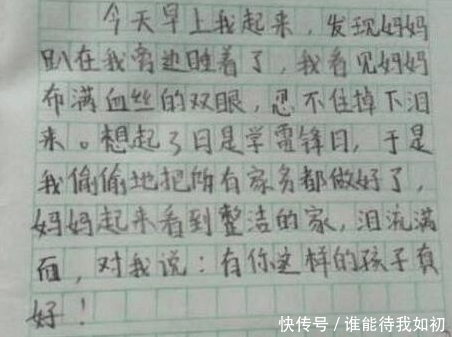 今天早上我起来，发现妈妈
趴在我旁边睡着了，我看见妈妈
布满血丝的双眼，忍不住掉下泪
来。想起3日是学雷锋日，于是
我偷偷地把所有家务都做好了，
妈妈起来看到整洁的家，泪流满
面，对我说：有你这样的孩子真
好！
快传号/谁能待我如初